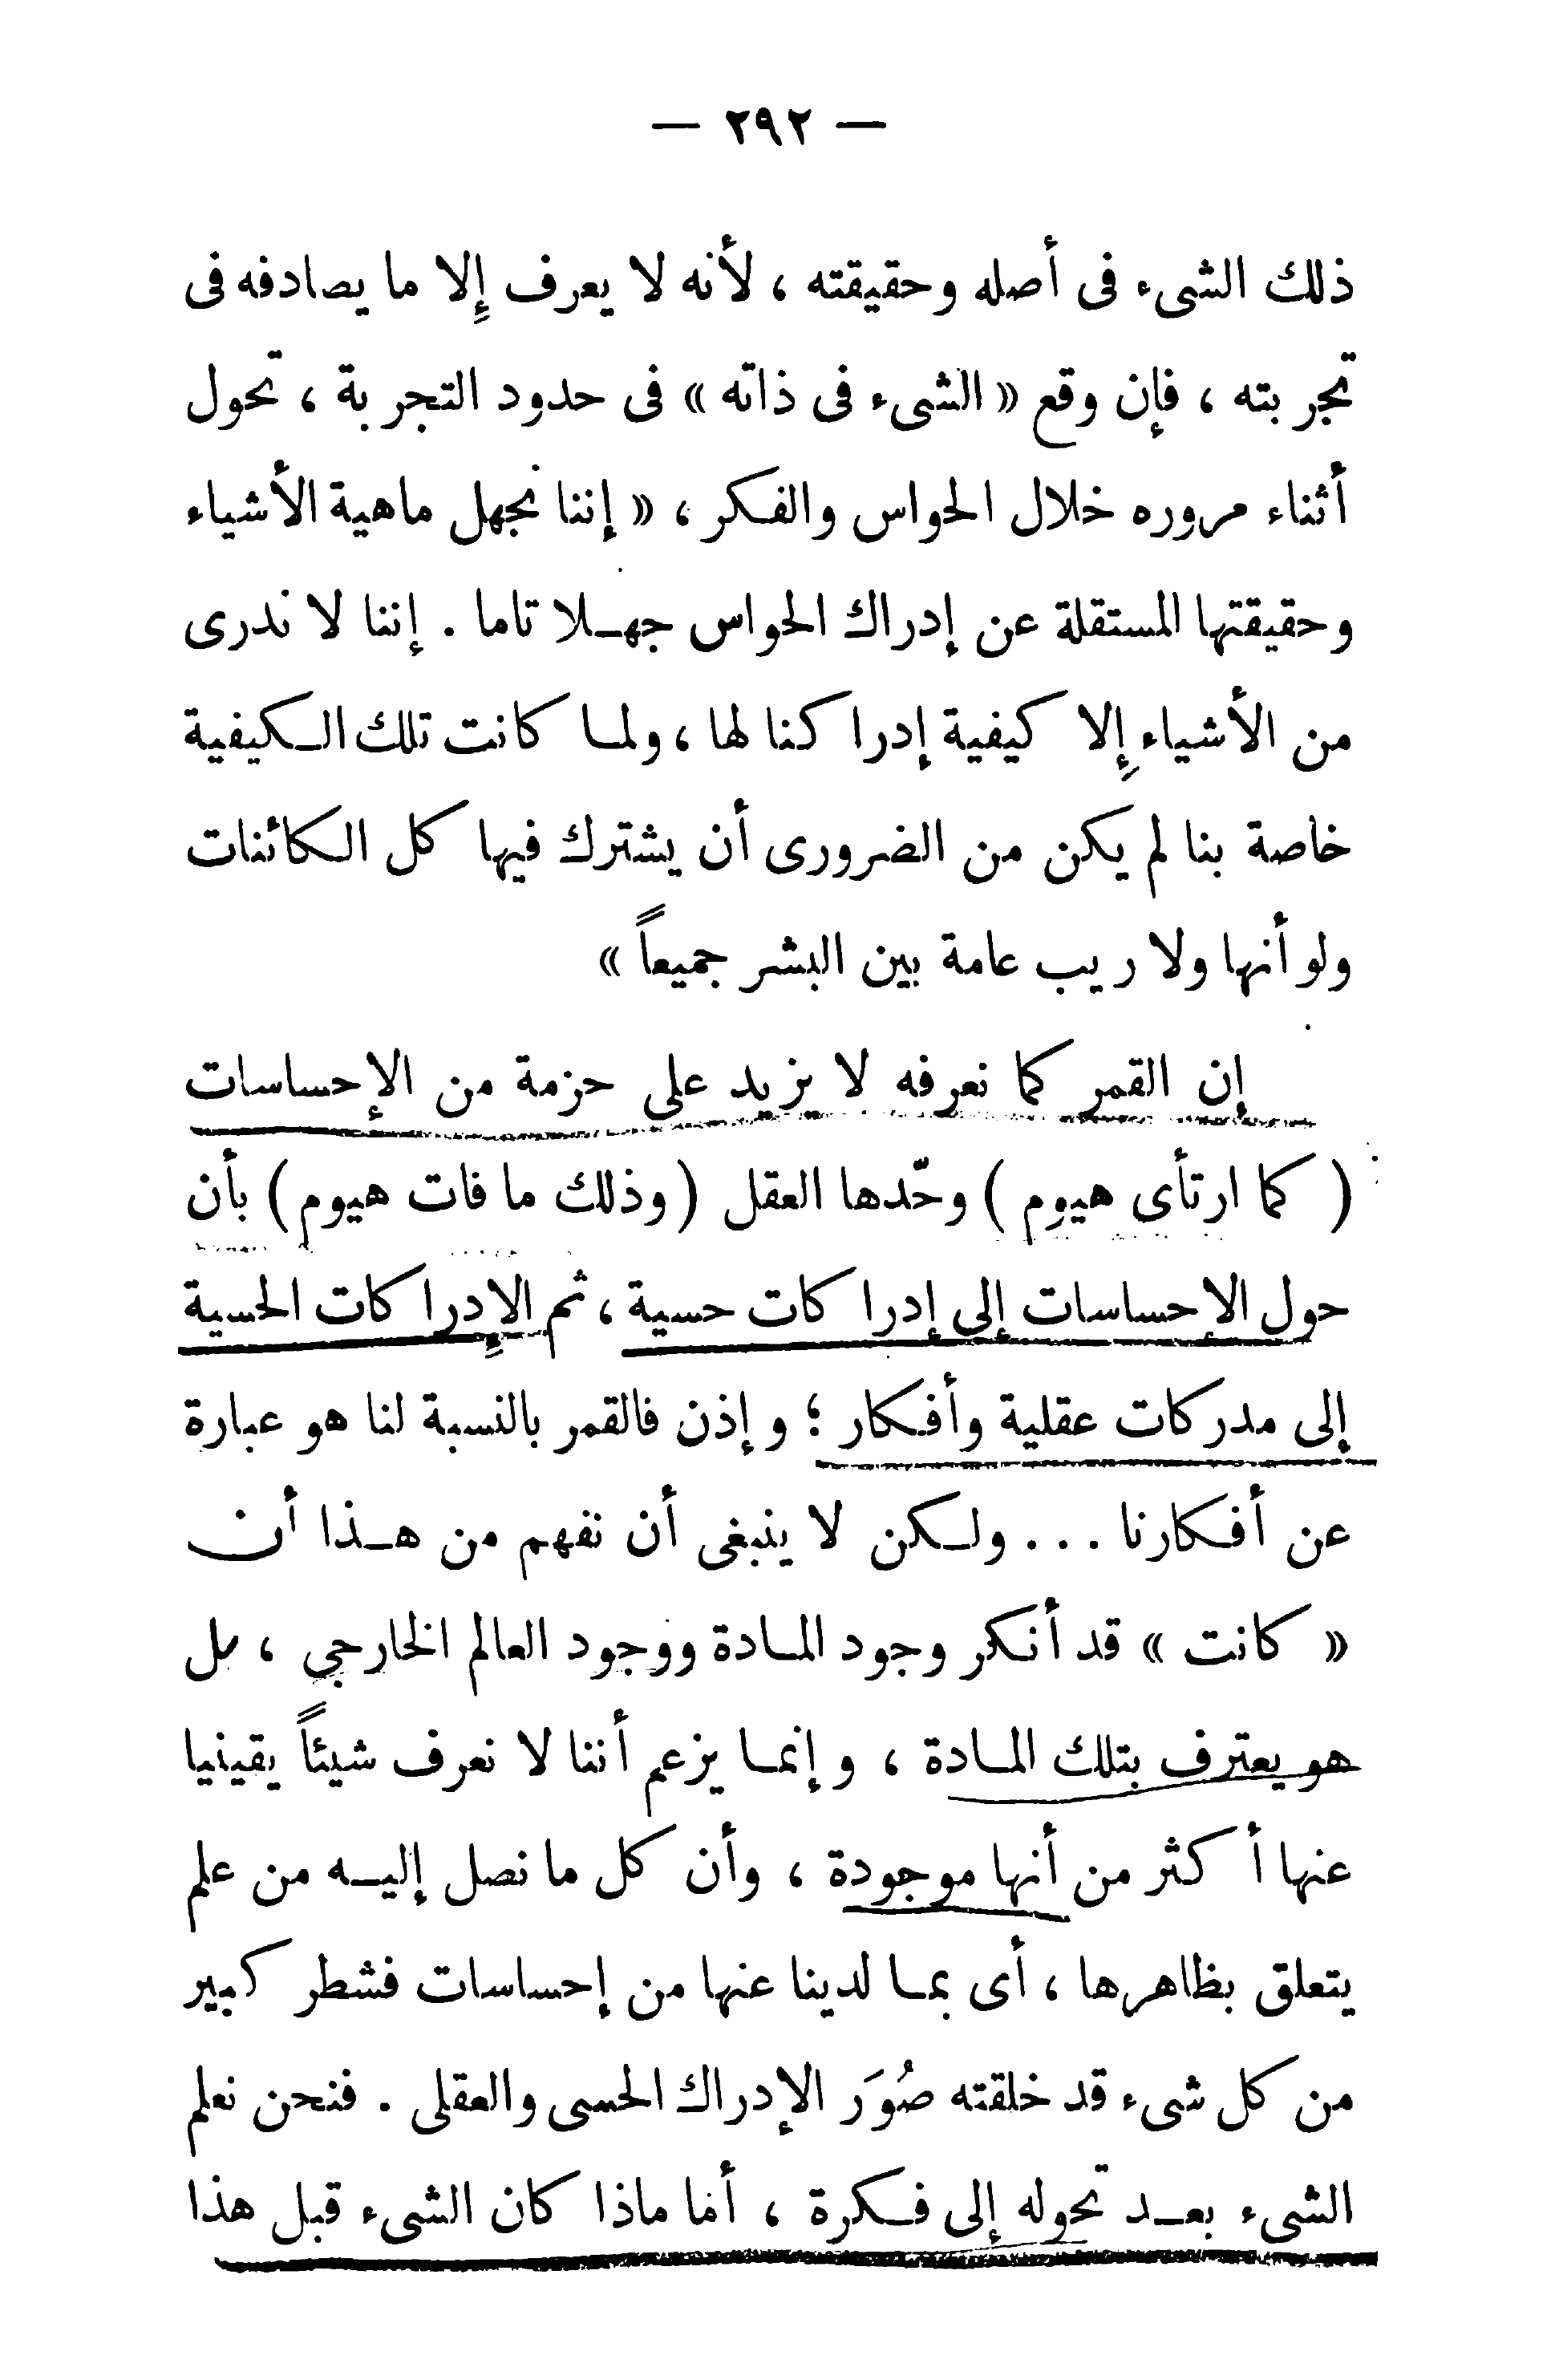 — ٢٩٢ —
ذلك الشىء فى أصله وحقيقته ، لأنه لا يعرف إلا ما يصادفه فى
تجربته ، فإن وقع « الشىء فى ذاته » فى حدود التجربة ، تحول
أثناء مروره خلال الحواس والفكر ، « إننا نجهل ماهية الأشياء
وحقيقتها المستقلة عن إدراك الحواس جهلا تاما . إننا لا ندرى
من الأشياء إلا كيفية إدراكنا لها ، ولما كانت تلك الكيفية
خاصة بنا لم يكن من الضرورى أن يشترك فيها كل الكائنات
ولو أنها ولا ريب عامة بين البشر جميعاً »
إن القمر كما نعرفه لا يزيد على حزمة من الإحساسات
( كما ارتأى هيوم ) وحّدها العقل ( وذلك ما فات هيوم ) بأن
حول الإحساسات إلى إدراكات حسية ، ثم الإدراكات الحسية
إلى مدركات عقلية وأفكار ؛ وإذن فالقمر بالنسبة لنا هو عبارة
عن أفكارنا ... ولكن لا ينبغى أن نفهم من هذا أن
« كانت » قد أنكر وجود المادة ووجود العالم الخارجى ، بل
هو يعترف بتلك المادة ، وإنما يزعم أننا لا نعرف شيئاً يقينيا
عنها أكثر من أنها موجودة ، وأن كل ما نصل إليه من علم
يتعلق بظاهرها ، أى بما لدينا عنها من إحساسات فشطر كبير
من كل شىء قد خلقته صُوَر الإدراك الحسى والعقلى . فنحن نعلم
الشىء بعد تحوله إلى فكرة ، أما ماذا كان الشىء قبل هذا